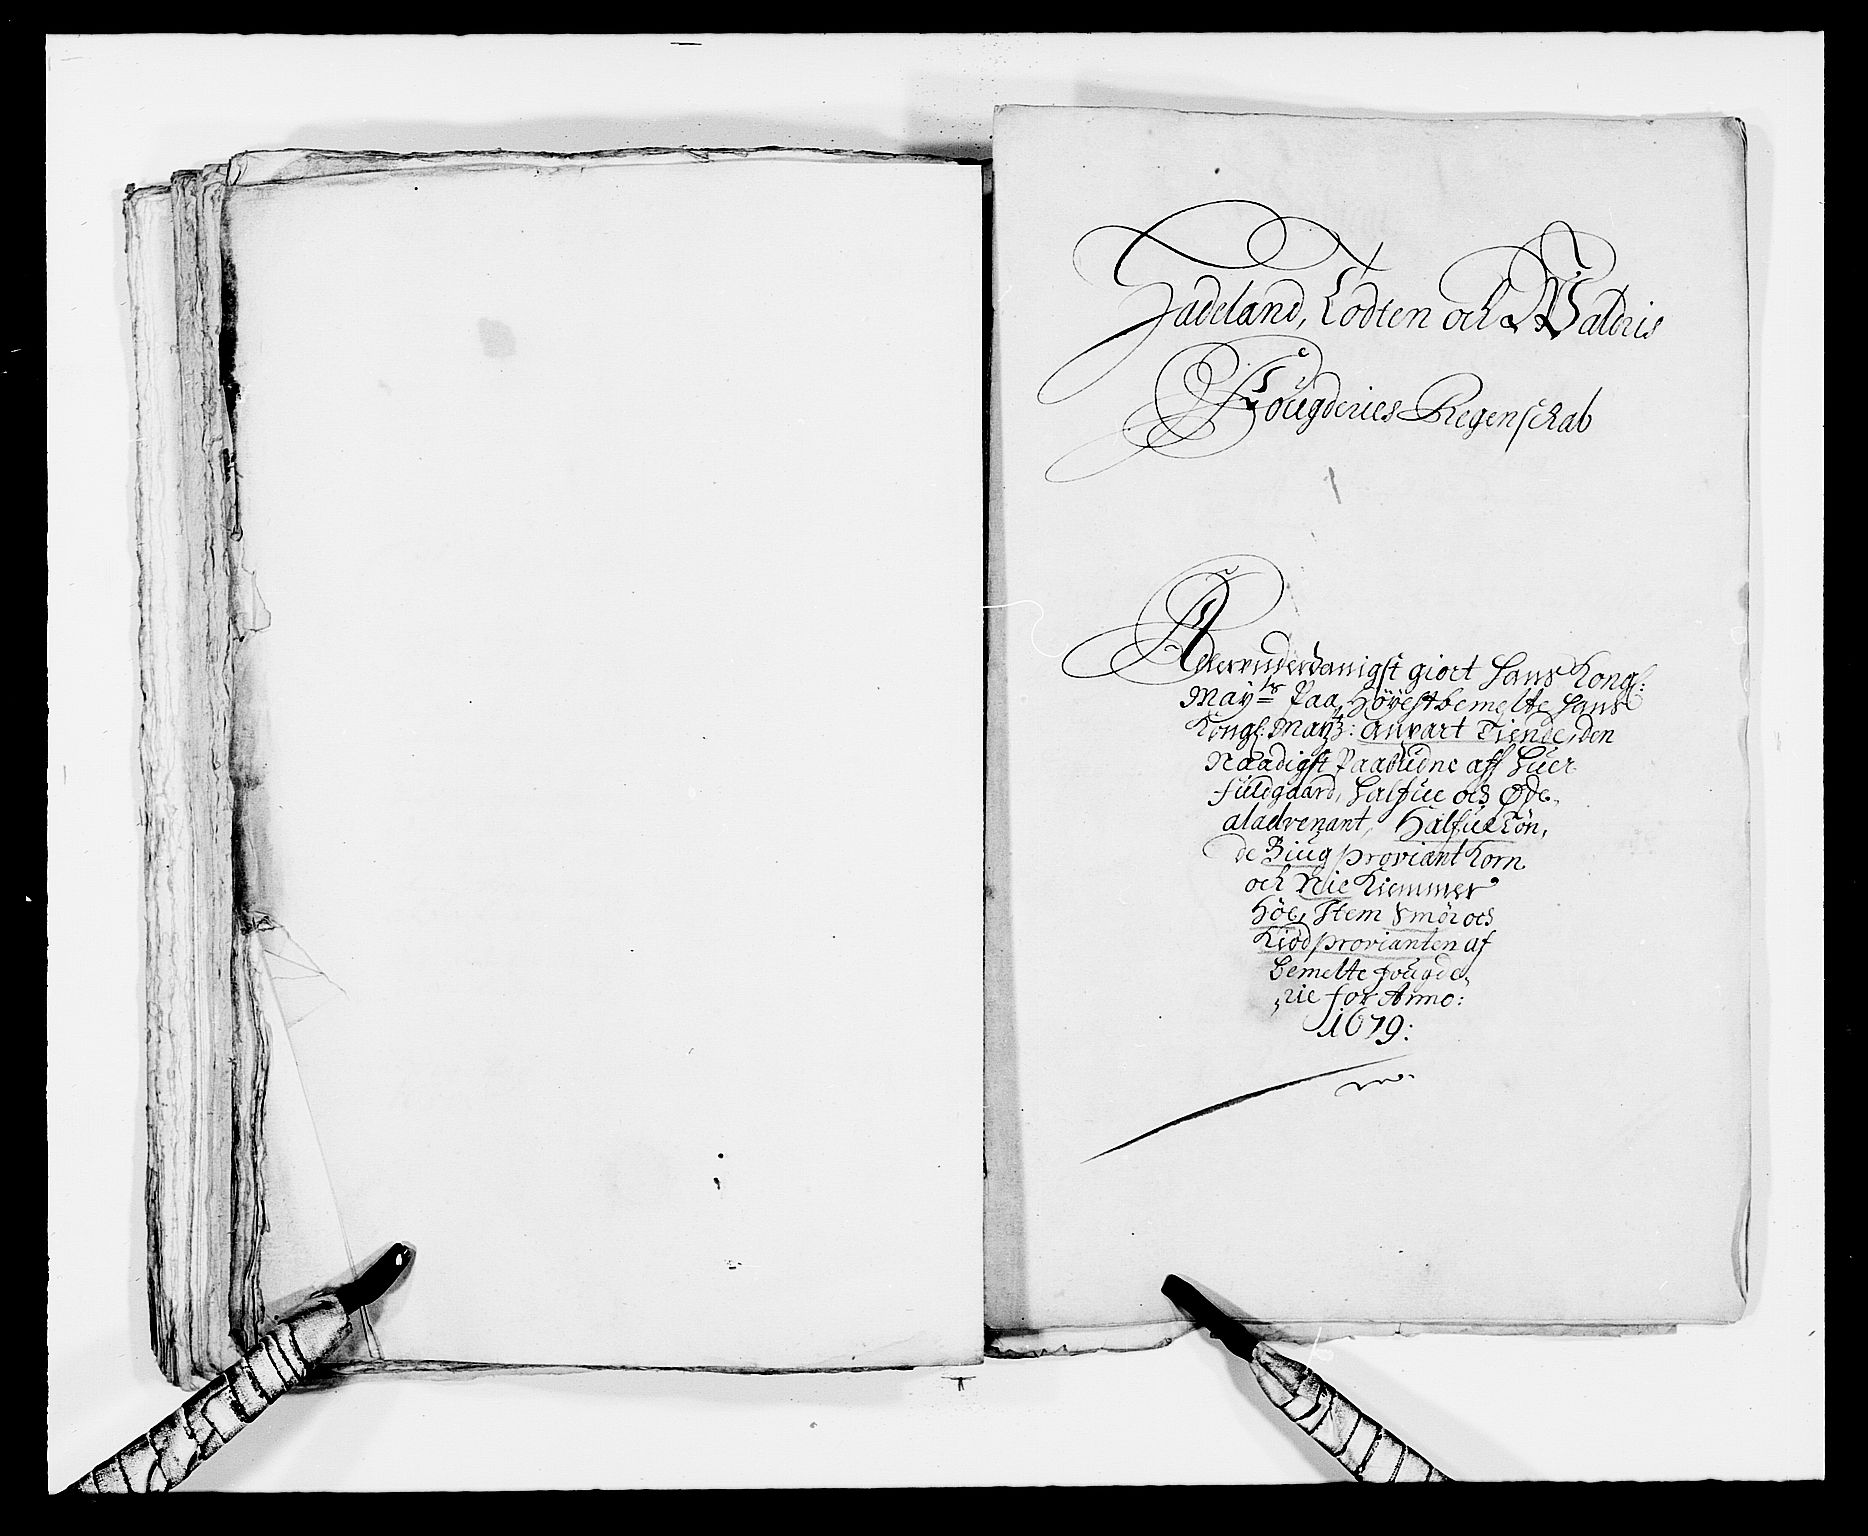 Hadeland, Todten och Waldris
Fougderies Regenskab
Allervnderdanigst giort Hans Kongl:
Mayts Paa Høyestbemelte Hans
Kongl: Maytz: anpart Tiende, den
Naadigst Paabudne aff Huer
fuldgaard, Halfue och Øde,
aladvenant, Halfue Tøn,
de Biug proviant Korn
och Nie Kiemmer
Høe, Item Smør och
Kiød provianten af
bemelte fougde,
,rie for Anno:
1679: